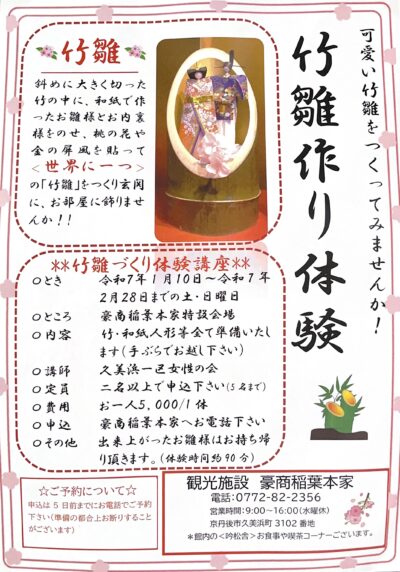 可愛い竹雛をつくってみませんか！
竹雛作り体験
竹雛
斜めに大きく切った
竹の中に、和紙で作
ったお雛様とお内裏
様をのせ、桃の花や
金の屏風を貼って
<世界に一つ>
の「竹雛」をつくり玄関
に、お部屋に飾りませ
んか！！
**竹雛づくり体験講座**
○とき 令和7年1月10日～令和7年
2月28日までの土・日曜日
○ところ 豪商稲葉本家特設会場
○内容 竹・和紙人形等全て準備いたし
ます(手ぶらでお越し下さい)
○講師 久美浜一区女性の会
○定員 二名以上で申込下さい(5名まで)
○費用 お一人5,000/1体
○申込 豪商稲葉本家へお電話下さい
○その他 出来上がったお雛様はお持ち帰
り頂きます。(体験時間約90分)
☆ご予約について☆
申込は5日前までにお電話でご予約
下さい(準備の都合上お断りすること
がございます)
観光施設 豪商稲葉本家
電話:0772-82-2356
営業時間:9:00～16:00(水曜休)
京丹後市久美浜町3102番地
*館内の<吟松舎>お食事や喫茶コーナーございます。